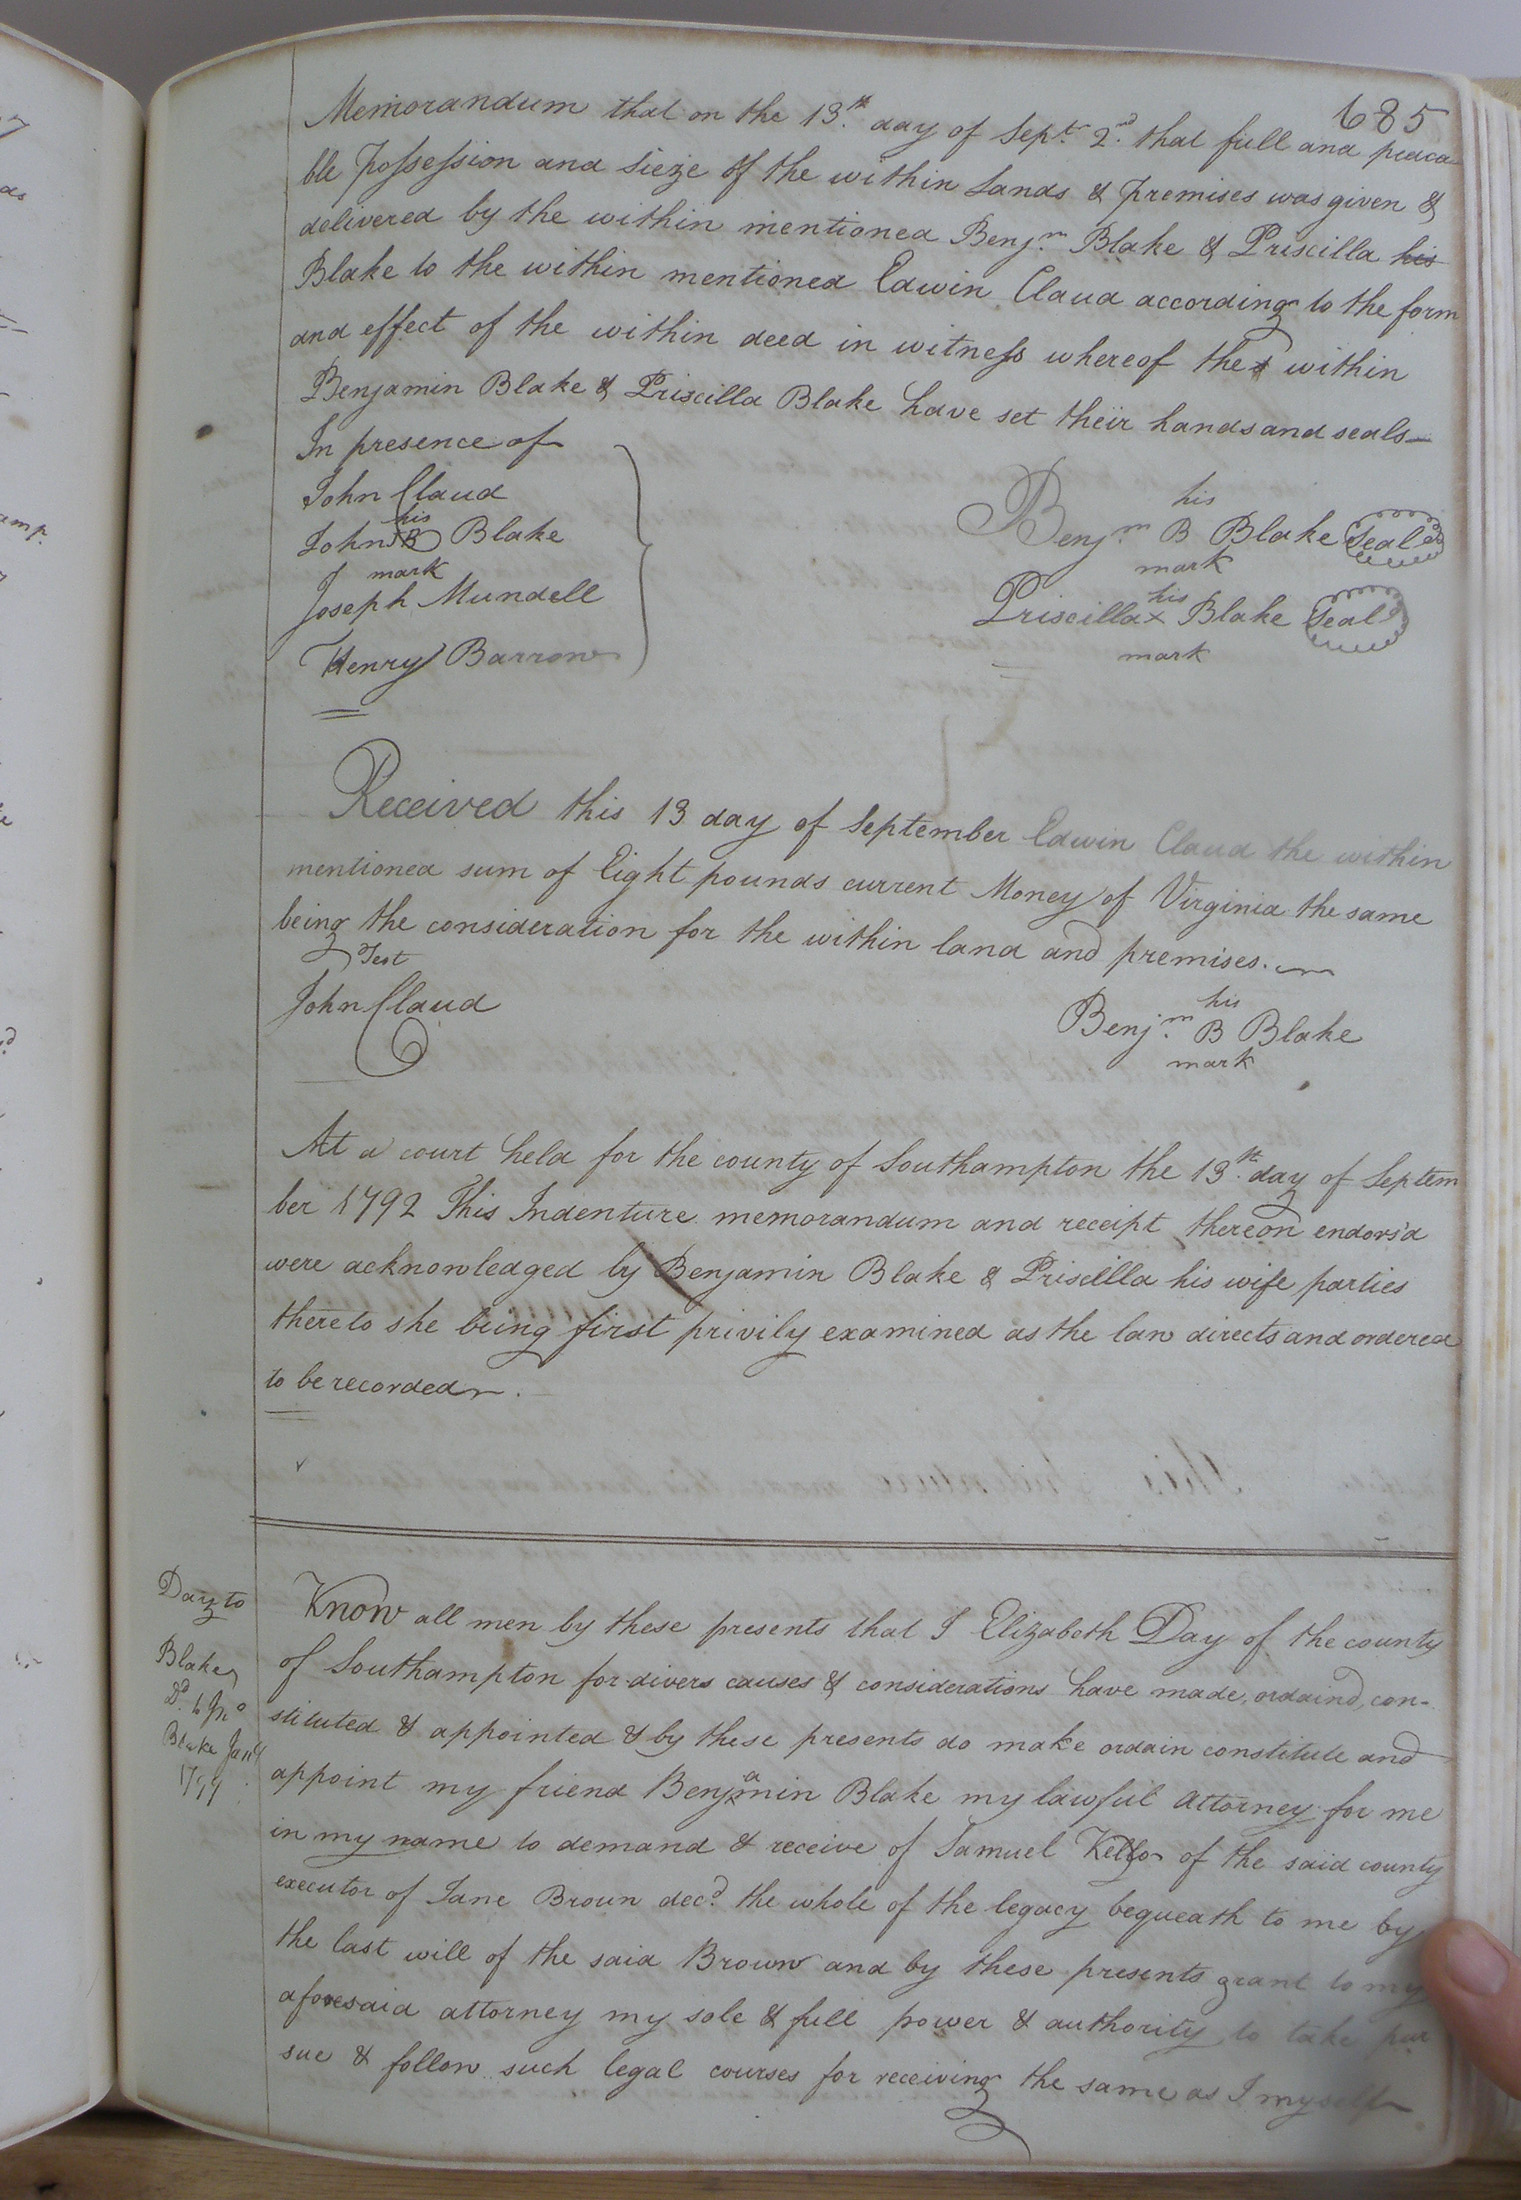 685
Memorandum that on the 13.th day of Sept.r 2.d that full and peacea
ble Possession and sieze of the within Lands & premises was given &
delivered by the within mentioned Benj.n Blake & Priscilla his
Blake to the within mentioned Edwin Claud according to the form
and effect of the within deed in witness whereof the within
Benjamin Blake & Priscilla Blake have set their hands and seals
In presence of
John Claud
his
John JB Blake
mark
Joseph Mundell
Henry Barrow
his
Benj.n B Blake Seal
mark
his
Priscilla x Blake Seal
mark
Received this 13 day of September Edwin Claud the within
mentioned sum of Eight pounds current Money of Virginia the same
being the consideration for the within land and premises.
Test
John Claud
his
Benj.n B Blake
mark
At a court held for the county of Southampton the 13.th day of Septem
ber 1792 This Indenture memorandum and receipt thereon endors'd
were acknowledged by Benjamin Blake & Priscilla his wife parties
thereto she being first privily examined as the law directs and ordered
to be recorded.
Day to
Blake
Dd. to Jno
Blake Jany
1799
Know all men by these presents that I Elizabeth Day of the county
of Southampton for divers causes & considerations have made, ordaind, con-
stituted & appointed & by these presents do make ordain constitute and
appoint my friend Benjamin Blake my lawful Attorney for me
in my name to demand & receive of Samuel Kello of the said county
executor of Jane Broun decd. the whole of the legacy bequeath to me by
the last will of the said Brown and by these presents grant to my
aforesaid attorney my sole & full power & authority to take pur
sue & follow such legal courses for receiving the same as I myself